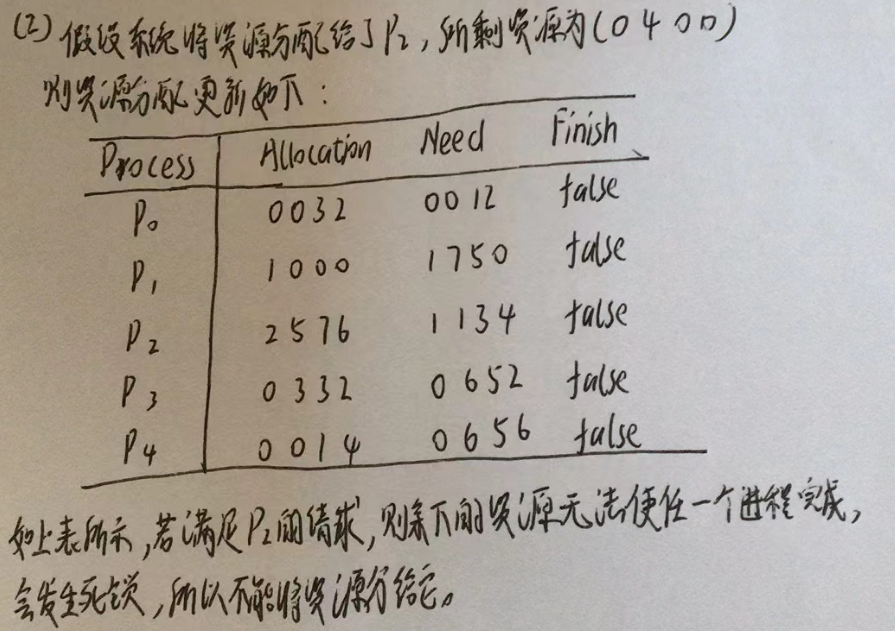 (2) 假设系统将资源分配给了P₂,所剩资源为(0 4 0 0)
则资源分配更新如下:
Process Allocation Need Finish
P₀ 0 0 3 2 0 0 1 2 false
P₁ 1 0 0 0 1 7 5 0 false
P₂ 2 5 7 6 1 1 3 4 false
P₃ 0 3 3 2 0 6 5 2 false
P₄ 0 0 1 4 0 6 5 6 false
如上表所示,若满足P₂的请求,则余下的资源无法使任一个进程完成,
会发生死锁,所以不能将资源分给它。